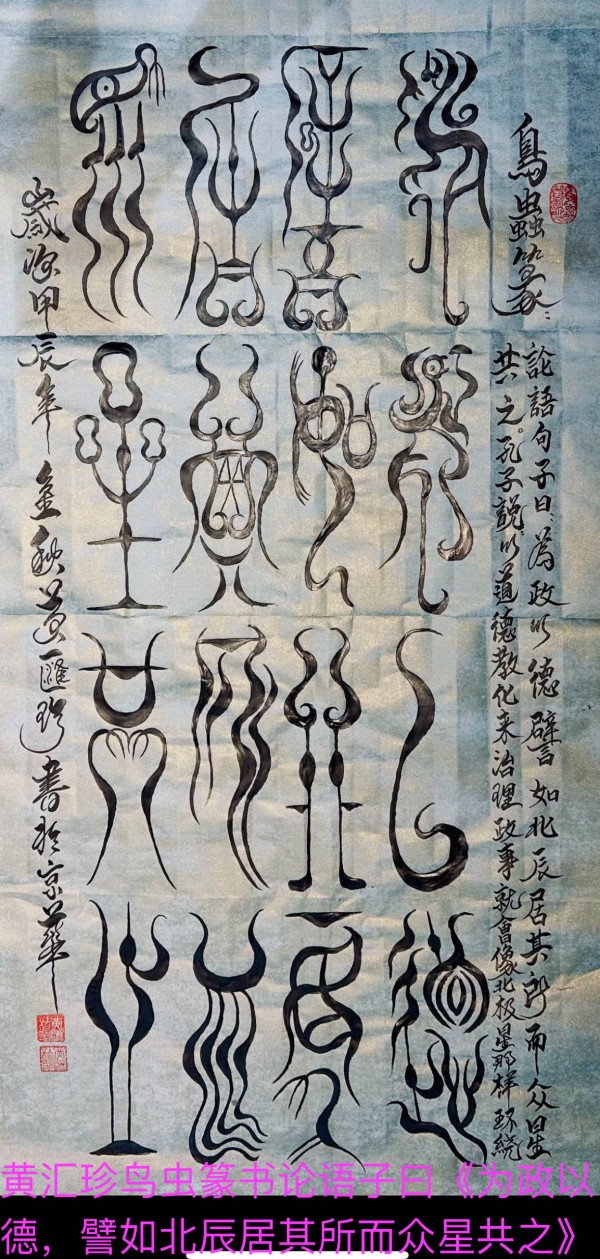 鳥蟲篆：
論語句子曰：為政以德譬如北辰居其所而众星
共之。孔子說：以道德教化来治理政事就會像北极星那样环绕
為政以德
譬如北辰
居其所而
眾星共之
歲次甲辰年金秋黃匯珍書於京華
黄汇珍鸟虫篆书论语子曰《为政以
德，譬如北辰居其所而众星共之》